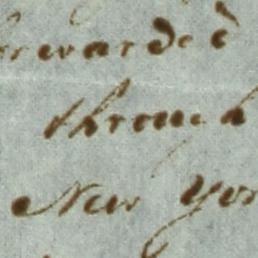 rwarded
through
New Yor